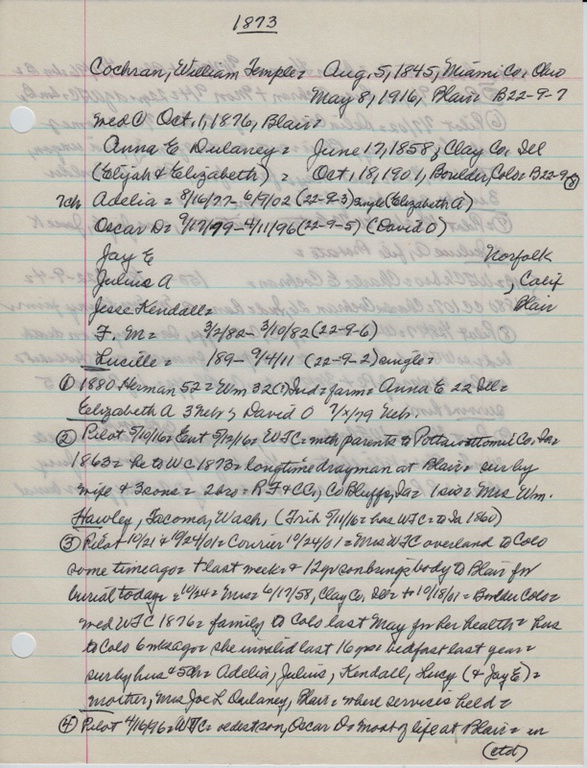 1873
Cochran, William Temple = Aug. 5, 1845, Miami Co, Ohio
May 8, 1916, Blair B22-9-7
wed C Oct. 1, 1876, Blair =
Anna E Dulaney = June 17, 1858, Clay Co. Ill
(Elijah & Elizabeth) = Oct, 18, 1901, Boulder, Colo B22-9-8
7ch Adelia = 8/16/77 - 6/9/02 (22-9-3) single (Elizabeth A)
Oscar D = 9/17/79 - 4/11/96 (22-9-5) (David O)
Jay E Norfolk
Julius A , Calif
Jesse Kendall = Blair
F. M = 3/2/82 - 3/10/82 (22-9-6)
Lucille = 189 - 9/4/11 (22-9-2) single =
① 1880 Herman 52 = Wm 32 (?) Ind = farm = Anna E 22 Ill =
Elizabeth A 3 Neb & David O 7/x/79 Neb.
② Pilot 5/10/16 = Ent 5/12/16 = WTC = with parents to Pottawattomie Co, Ia =
1863 = he to WC 1873 = longtime drayman at Blair = sur by
wife & 3 sons = 2 bro = R F & CC, Co Bluffs, Ia = 1 sis = Mrs Wm.
Hawley, Tacoma, Wash, (Trib 5/11/16 = has WTC = to Ia 1860)
③ Pilot 10/21 & 10/24/01 = Courier 10/24/01 = Mrs WTC overland to Colo
some time ago = last week & 12 yr son brings body to Blair for
burial today = 10/24 = Mrs = 6/17/58, Clay Co, Ill = to 10/18/01 = Boulder Colo =
wed WTC 1876 = family to Colo last May for her health = has
to Colo 6 mos ago = she invalid last 16 yrs bedfast last year =
sur by hus & 5 ch = Adelia, Julius, Kendall, Lucy (& Jay E) =
mother, Mrs Joe L Dulaney, Blair = where service is held =
④ Pilot 4/16/96 = WTC = oldest son, Oscar D = most of life at Blair = in
(ctd)